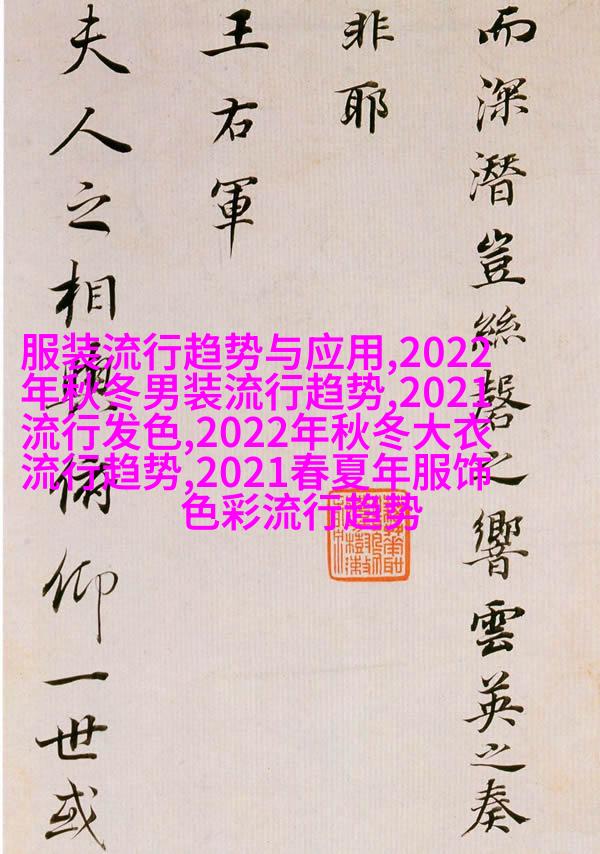 而深潛豈絲磬之響雲英之奏
非耶
王右軍
夫人之相與俯仰一世或
服装流行趋势与应用,2022
年秋冬男装流行趋势,2021
流行发色,2022年秋冬大衣
流行趋势,2021春夏年服饰
色彩流行趋势